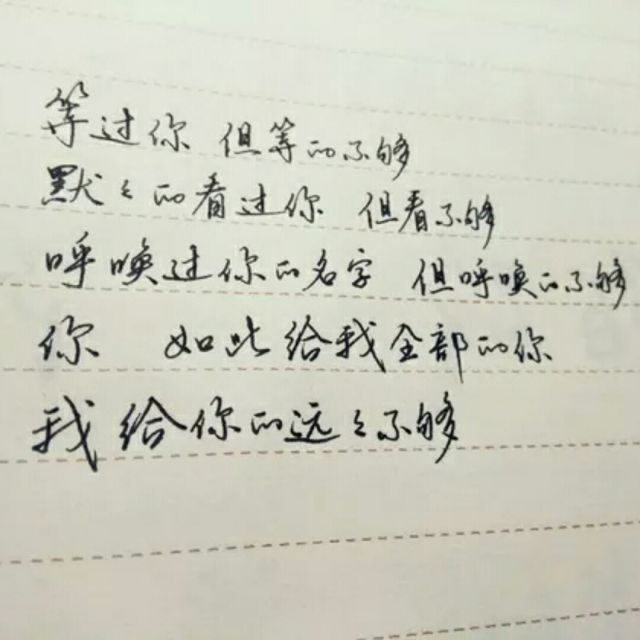 等过你 但等的不够
默々的看过你 但看不够
呼唤过你的名字 但呼唤的不够
你 如此给我全部的你
我给你的远々不够